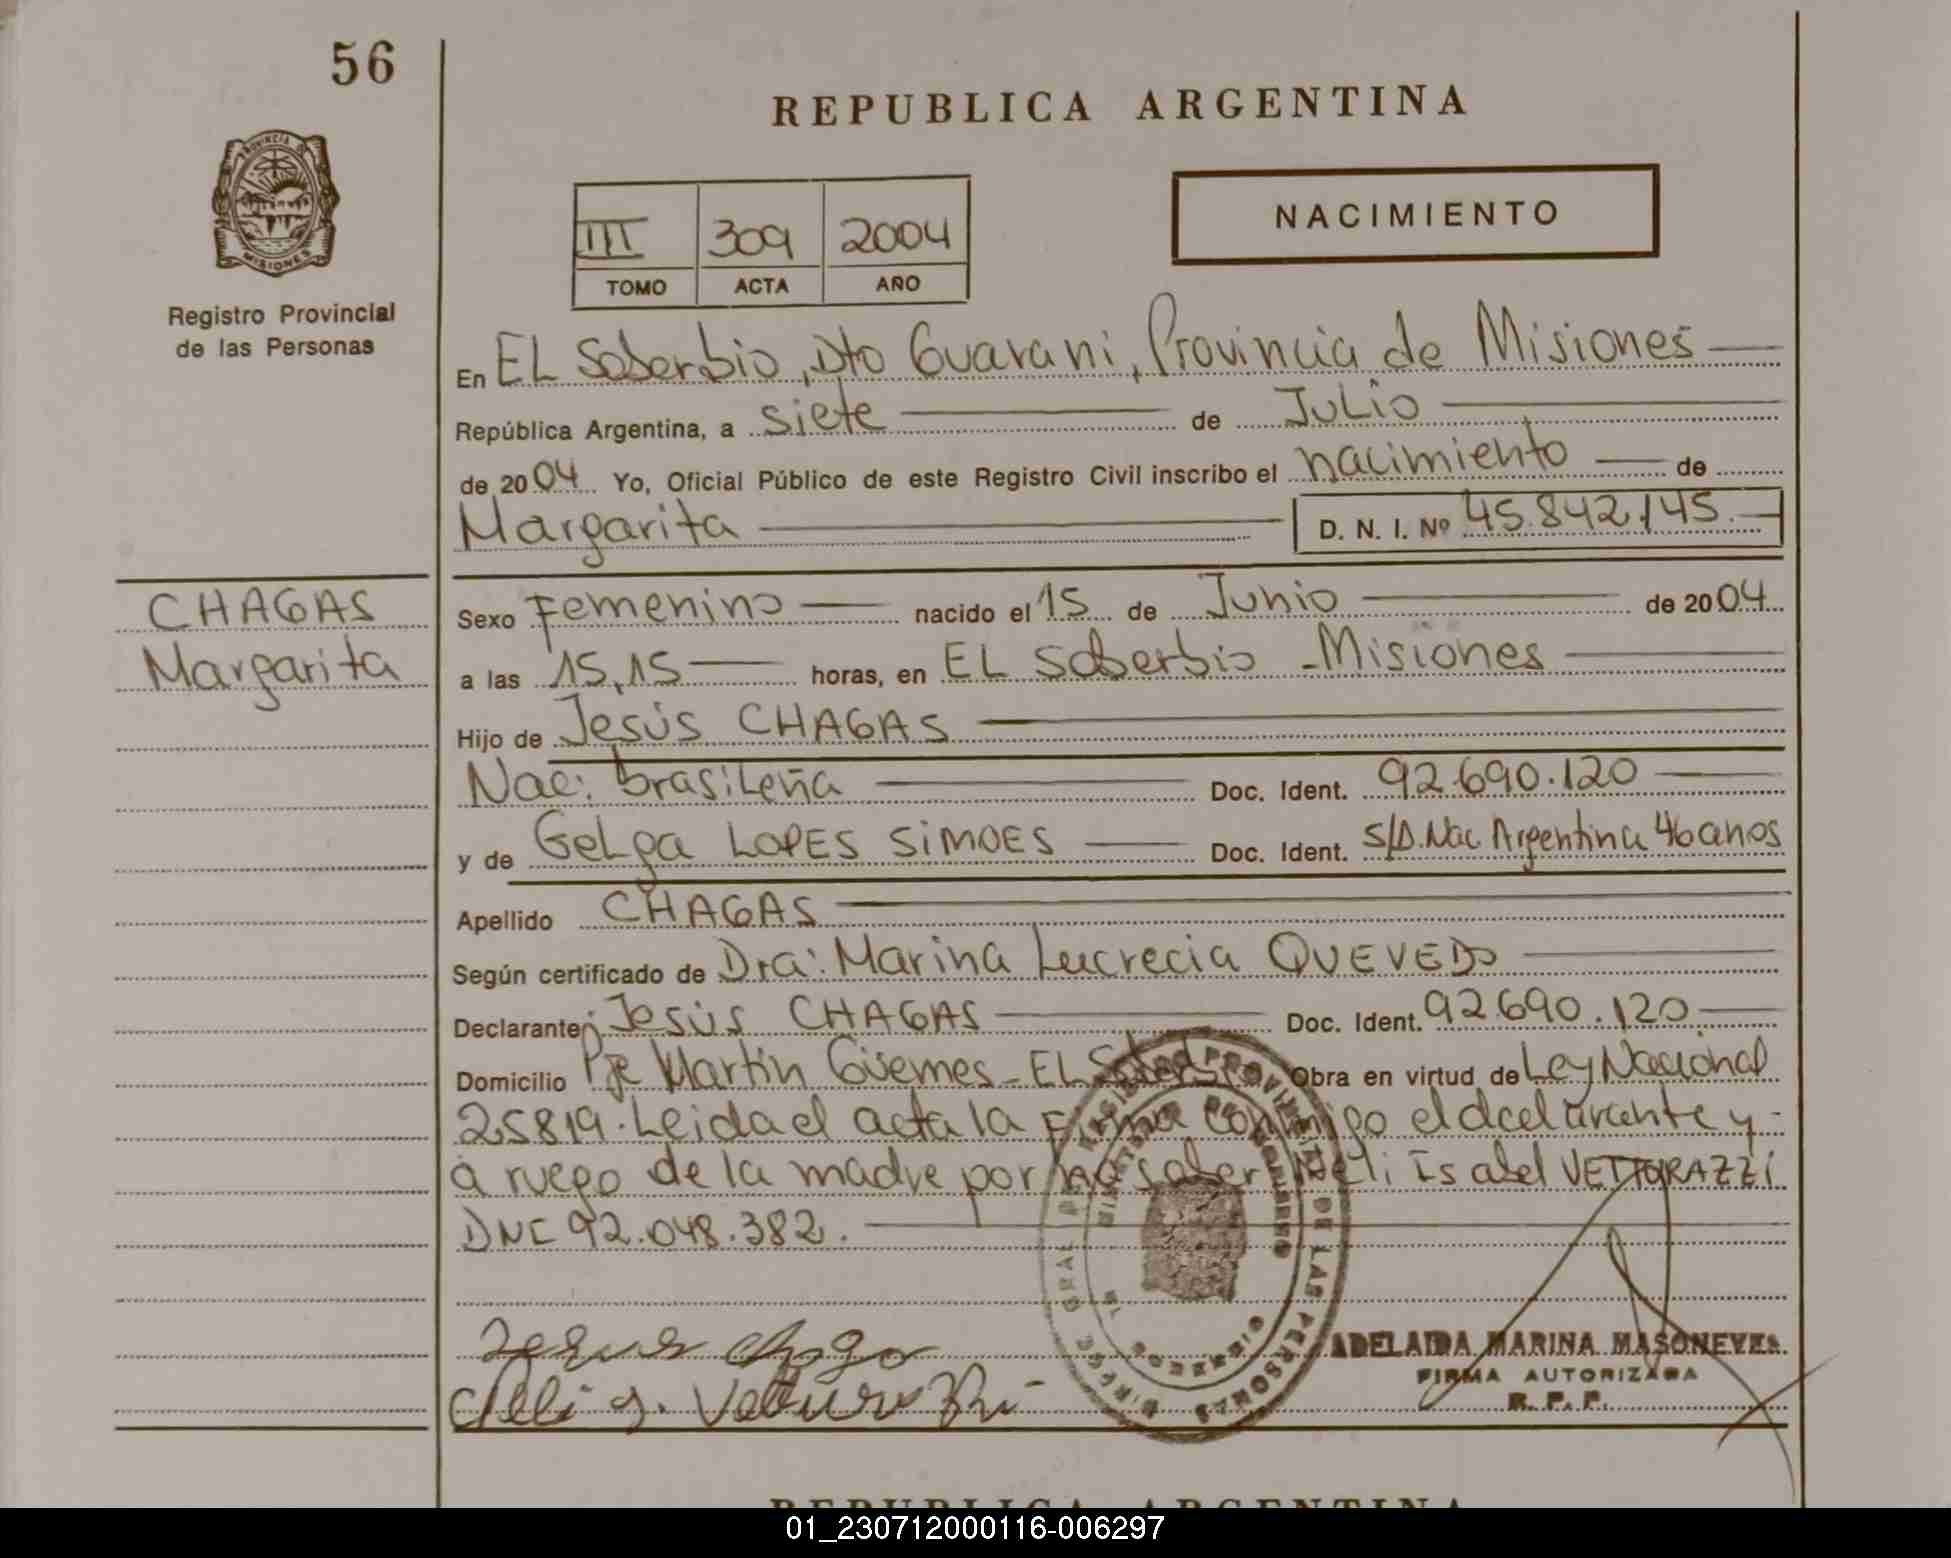 56
REPUBLICA ARGENTINA
PROVINCIA DE
MISIONES
Registro Provincial
de las Personas
NACIMIENTO
III 309 2004
TOMO ACTA AÑO
En EL Soberbio, Dto Guarani, Provincia de Misiones
República Argentina, a siete de Julio
de 2004 Yo, Oficial Público de este Registro Civil inscribo el nacimiento de
Margarita D. N. I. Nº 45.842.145
CHAGAS
Margarita
Sexo Femenino nacido el 15 de Junio de 2004
a las 15,15 horas, en EL Soberbio - Misiones
Hijo de Jesús CHAGAS
Nac: brasileña Doc. Ident. 92.690.120
y de Gelga LOPES SIMOES Doc. Ident. S/D. Nac Argentina 46 anos
Apellido CHAGAS
Según certificado de Dra: Marina Lucrecia QUEVEDO
Declarante: Jesús CHAGAS Doc. Ident. 92.690.120
Domicilio Pje Martín Güemes - EL Soberbio Obra en virtud de Ley Nacional
25819. Leida el acta la firma conmigo el dcelarante y
a ruego de la madre por no saber Neli Isabel VETTORAZZI
DNI 92.048.382.
DIREC GRAL DE REGISTRO PROVINCIAL DE LAS PERSONAS
MINISTERIO DE GOBIERNO
Jesus Chaga
Neli I. Vettorazzi
ADELAIDA MARINA MASONEVES
FIRMA AUTORIZADA
R. P. P.
REPUBLICA ARGENTINA
01_230712000116-006297